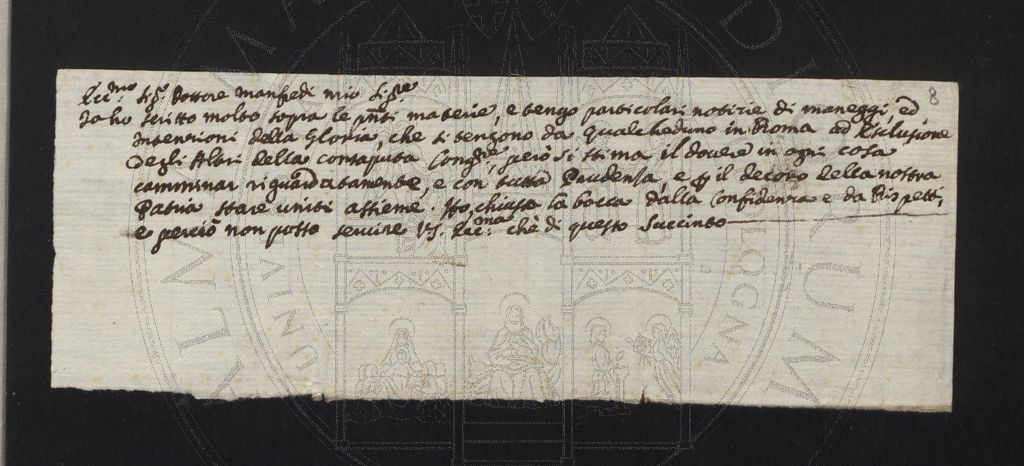 8
Ecc.mo Sig.r Dottore Manfredi mio Sig.re
Io ho scritto molto sopra le pnti materie, e tengo particolari notizie di maneggi, ed
Intenzioni della Gloria, che si tengono da Qualcheduno in Roma ad Esclusione
Degli Altri della consaputa Cong.ne, però si stima il dovere in ogni cosa
camminar riguardatamente, e con tutta Prudenza, e p il decoro della nostra
Patria stare uniti assieme. Ho chiusa la bocca dalla Confidenza e da Rispetti,
e perciò non posso servire V.S. Ecc.ma che di questo Succinto
UNI
BOLOGNA